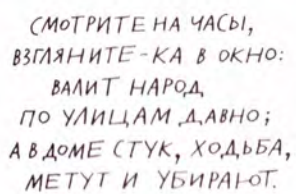 СМОТРИТЕ НА ЧАСЫ,
ВЗГЛЯНИТЕ-КА В ОКНО:
ВАЛИТ НАРОД
ПО УЛИЦАМ ДАВНО;
А В ДОМЕ СТУК, ХОДЬБА,
МЕТУТ И УБИРАЮТ.